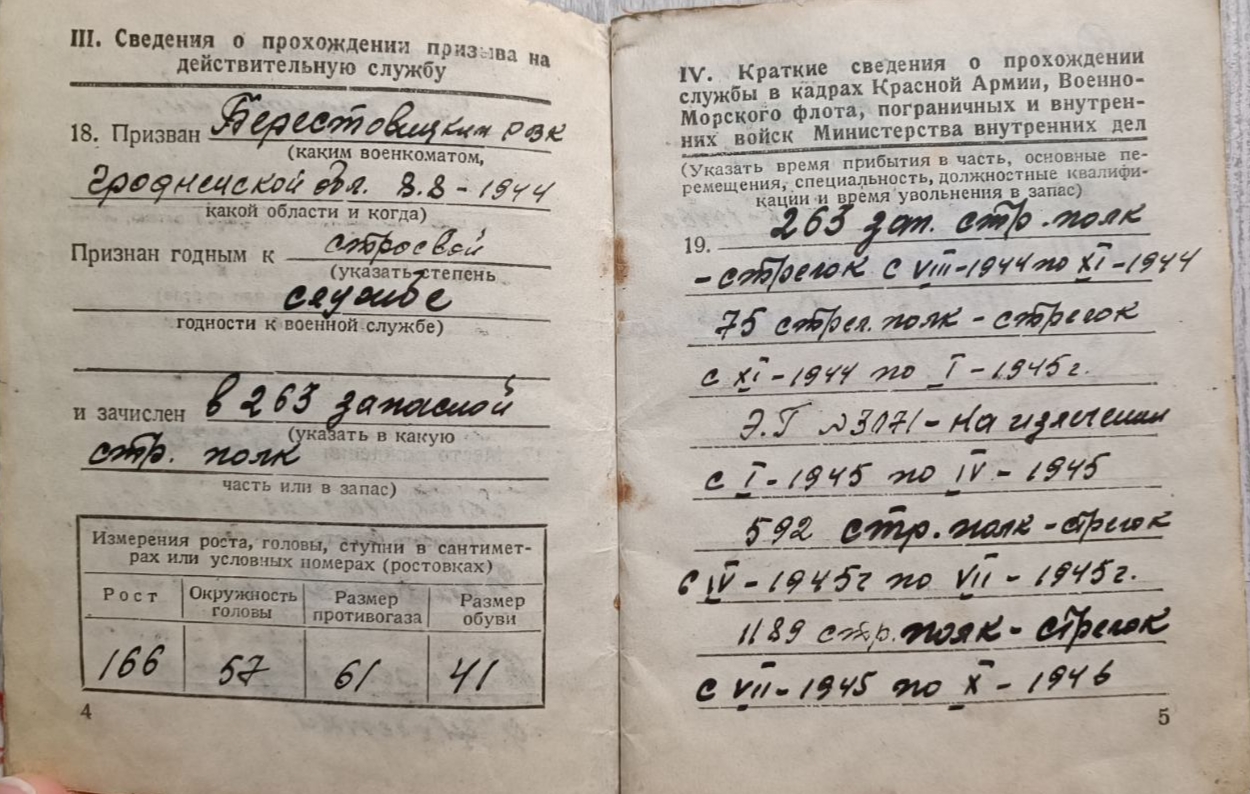 III. Сведения о прохождении призыва на
действительную службу
18. Призван Берестовицким РВК
(каким военкоматом,
Гродненской обл. 8.8 - 1944
какой области и когда)
Признан годным к строевой
(указать степень
службе
годности к военной службе)
и зачислен в 263 запасной
(указать в какую
стр. полк
часть или в запас)
Измерения роста, головы, ступни в сантимет-
рах или условных номерах (ростовках)
Рост Окружность головы Размер противогаза Размер обуви
166 57 61 41
4
IV. Краткие сведения о прохождении
службы в кадрах Красной Армии, Военно-
Морского флота, пограничных и внутрен-
них войск Министерства внутренних дел
(Указать время прибытия в часть, основные пе-
ремещения, специальность, должностные квалифи-
кации и время увольнения в запас)
19. 263 зап. стр. полк
- стрелок с VIII - 1944 по XI - 1944
75 стрел. полк - стрелок
с XI - 1944 по I - 1945 г.
Э.Г №3171 - на излечении
с I - 1945 по IV - 1945
592 стр. полк - стрелок
с IV - 1945г по VII - 1945г.
1189 стр. полк - стрелок
с VII - 1945 по X - 1946
5